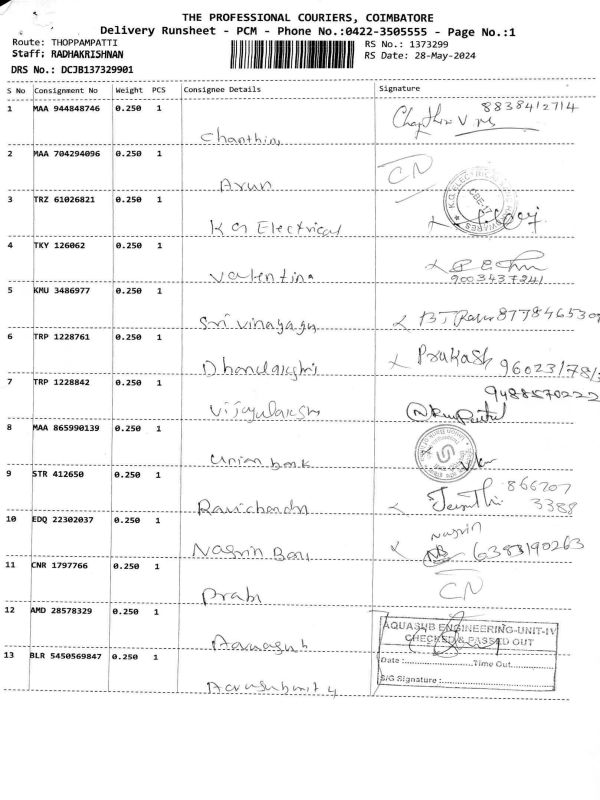 THE PROFESSIONAL COURIERS, COIMBATORE
Delivery Runsheet - PCM - Phone No.:0422-3505555 - Page No.:1
Route: THOPPAMPATTI
Staff: RADHAKRISHNAN
RS No.: 1373299
RS Date: 28-May-2024
DRS No.: DCJB137329901
S No Consignment No Weight PCS Consignee Details Signature
1 MAA 944848746 0.250 1 8838412714
Chanthini
2 MAA 704294096 0.250 1 CN
Arun
3 TRZ 61026821 0.250 1
K G Electrical
4 TKY 126062 0.250 1
Valentina 9003437241
5 KMU 3486977 0.250 1
Sri vinayaga
6 TRP 1228761 0.250 1 Prakash
Dhanalakshmi
7 TRP 1228842 0.250 1 9488570222
Vijayalakshmi
8 MAA 865990139 0.250 1
Union bank
9 STR 412650 0.250 1 866707
Ravichandran 3388
10 EDQ 22302037 0.250 1 Nasrin
Nasrin Banu NB 6383190263
11 CNR 1797766 0.250 1 CN
Prabu
12 AMD 28578329 0.250 1
AQUASUB ENGINEERING-UNIT-IV
CHECKED & PASSED OUT
Aquasub
13 BLR 5450569847 0.250 1
Date : Time Out
S/G Signature :
Aquasub unit 4